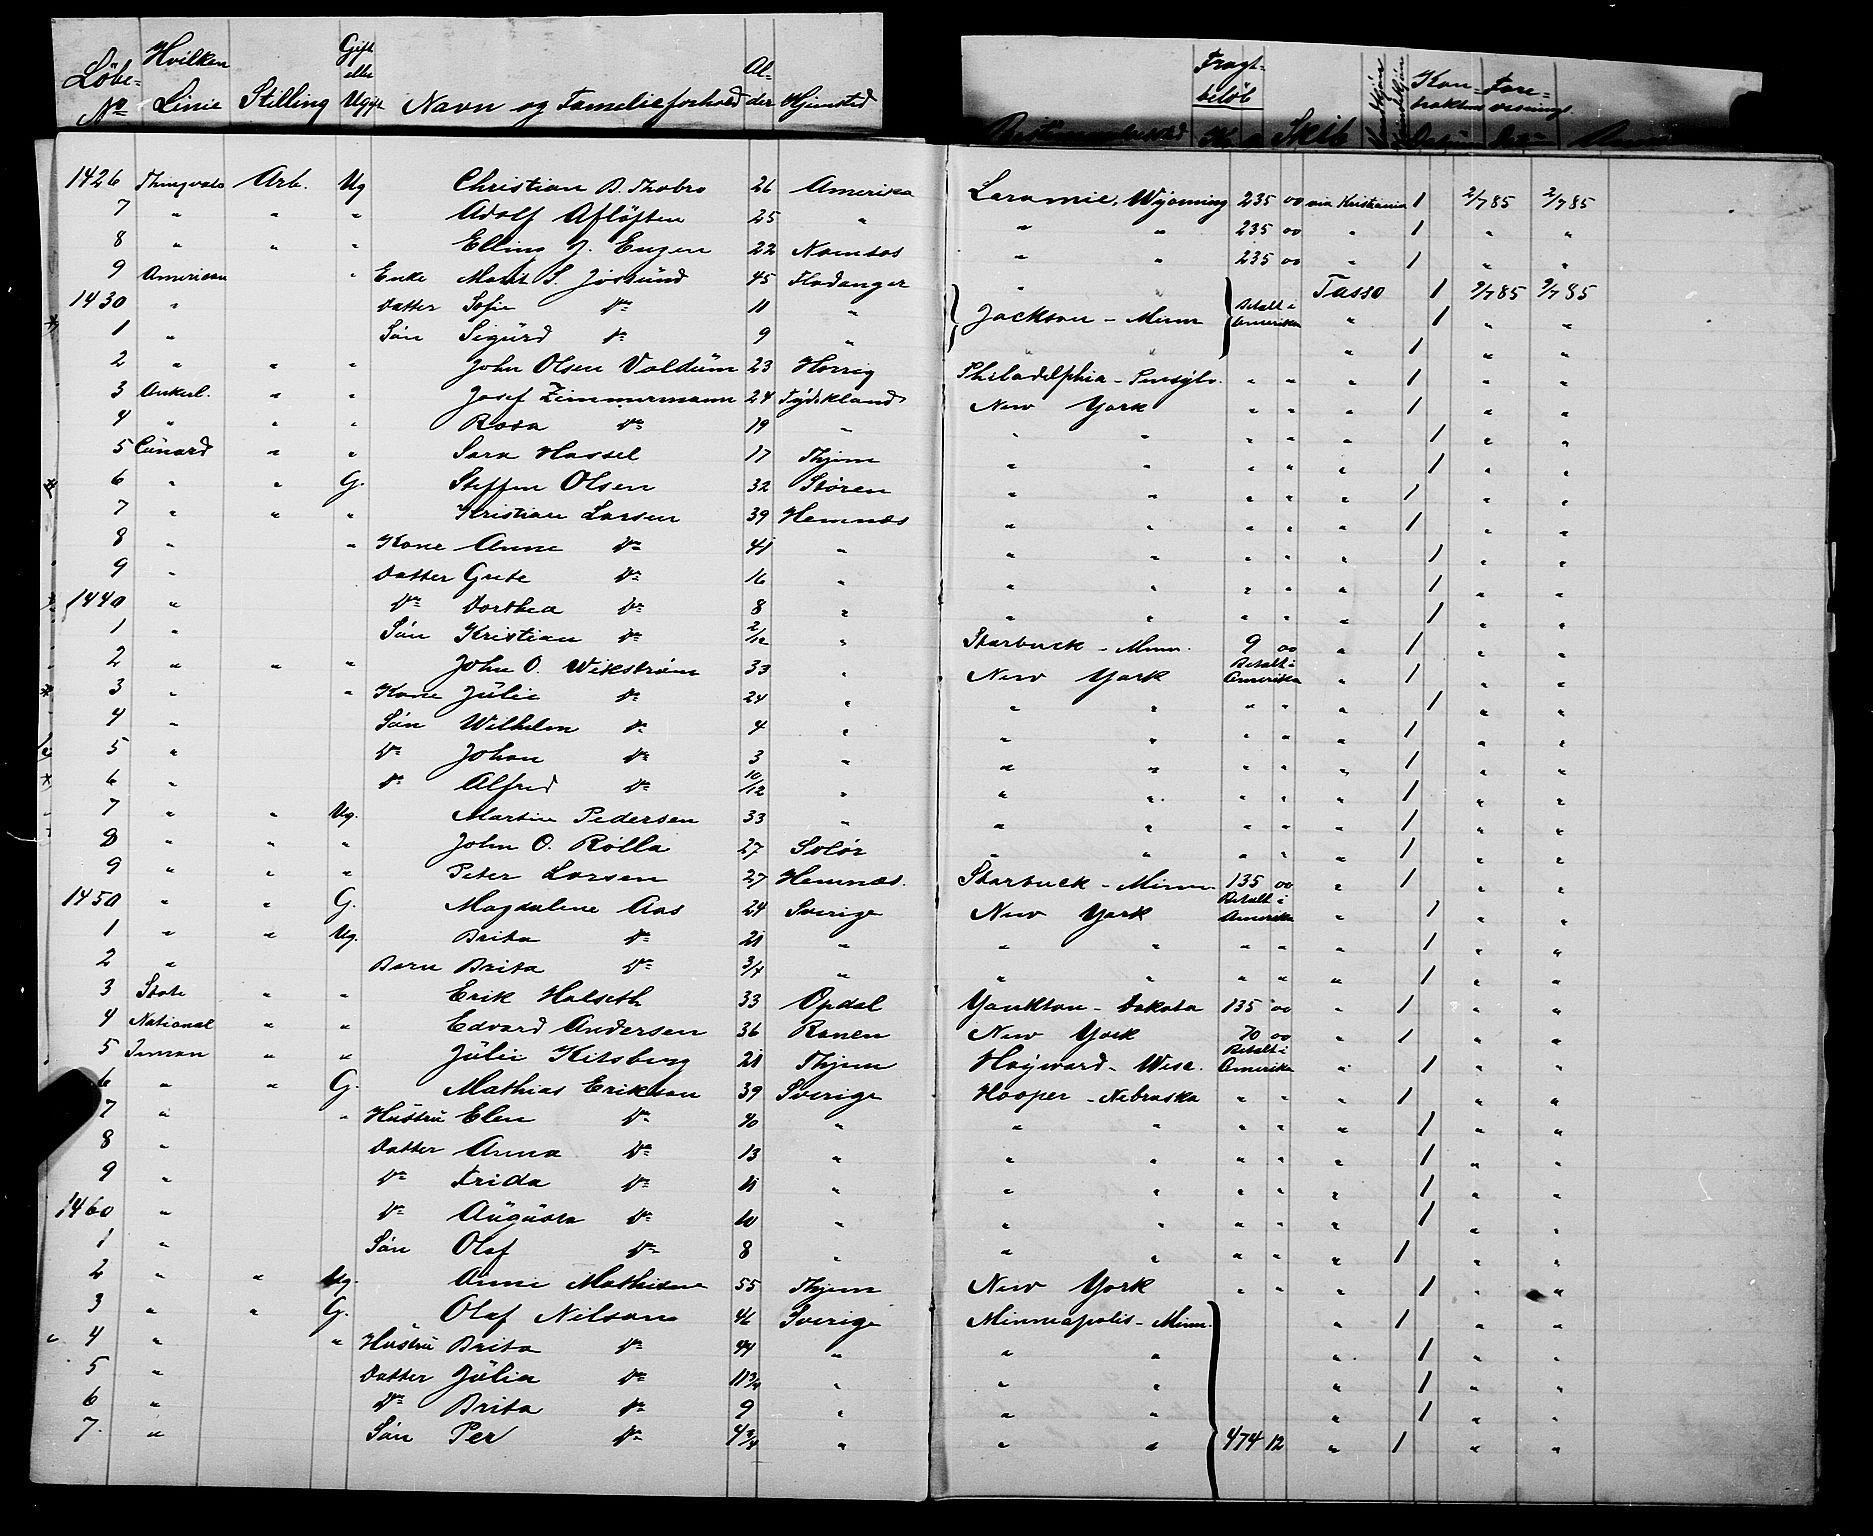 Löbe- No Hvilken Linie Stilling Gift eller Ugift Navn og Familieforhold Alder Hjemsted Fragtbeløb Kr. Skib Kontraktens Datum Forevisnings
1426 Thingvala Arb. Ug Christian B. Thobro 26 Amerika Laramie, Wyoming 235 00 via Kristiania 1 2/7 85 2/7 85
7 " " " Adolf Aflöften 25 " " " 235 00 " 1 " "
8 " " " Elling J. Engen 22 Namsos " " 235 00 " 1 " "
9 American " Enke Marit S. Jösund 45 Fladanger " Tasso 1 9/7 85 9/7 85
1430 " Datter Sofie Do 11 " Jackson - Minn Betalt i Amerika " 1 " "
1 " Sön Sigurd Do 9 " " " " 1 " "
2 " " " John Olsen Valdum 23 Horrig Philadelphia - Pensylv. " " " 1 " "
3 Ankerl. " " Josef Zimmermann 24 Tydskland New York " " " 1 " "
4 " " " Rosa Do 19 " " " " " " 1 " "
5 Cunard " " Sara Hassel 17 Thjem " " " " " 1 " "
6 " " G. Steffen Olsen 32 Stören " " " " " 1 " "
7 " " " Kristian Larsen 39 Hemnæs " " " " " 1 " "
8 " " Kone Anne Do 41 " " " " " " 1 " "
9 " Datter Grete Do 16 " " " " " " 1 " "
1440 " Do Dorthea Do 8 " " " " " " 1 " "
1 " Sön Kristian Do 2/12 " Starbuck - Minn. 9 00 " 1 " "
2 " " " John O. Wikström 33 " New York Betalt i Amerika " 1 " "
3 " " Kone Julie Do 24 " " " " " " 1 " "
4 " Sön Wilhelm Do 4 " " " " " " 1 " "
5 " Do Johan Do 3 " " " " " " 1 " "
6 " Do Alfred Do 10/12 " " " " " " 1 " "
7 " " Ug. Martin Pedersen 33 " " " " " " 1 " "
8 " " " John O. Rölla 27 Solör " " " " " 1 " "
9 " " " Peter Larsen 27 Hemnæs. Starbuck - Minn 135 00 " 1 " "
1450 " " G. Magdalene Aas 24 Sverige New York Betalt i Amerika " 1 " "
1 " " Ug. Brita Do 21 " " " " " " 1 " "
2 " Barn Brita Do 3/4 " " " " " " 1 " "
3 State " " Erik Halseth 33 Opdal Yankton - Dakota 135 00 " 1 " "
4 National " " Edvard Andersen 36 Ranen New York 70 00 " 1 " "
5 Inman " " Julie Kitsberg 21 Thjem Hayward - Wisc. Betalt i Amerika " 1 " "
6 " " G. Mathias Erikson 39 Sverige Hooper - Nebraska " " " 1 " "
7 " " Hustru Elen Do 40 " " " " " " 1 " "
8 " Datter Anna Do 13 " " " " " " 1 " "
9 " Do Frida Do 11 " " " " " " 1 " "
1460 " Do Augusta Do 10 " " " " " " 1 " "
1 " Sön Olaf Do 8 " " " " " " 1 " "
2 " " Ug. Anne Mathisen 55 Thjem New York " " " 1 " "
3 " " G. Olaf Nilson 46 Sverige Minneapolis - Minn. " 1 " "
4 " " Hustru Brita Do 44 " " " " 1 " "
5 " Datter Julia Do 11 3/4 " " " " 1 " "
6 " Do Brita Do 9 " " " " 1 " "
7. " Sön Per Do 4 3/4 " " " 474 12 " 1 " "